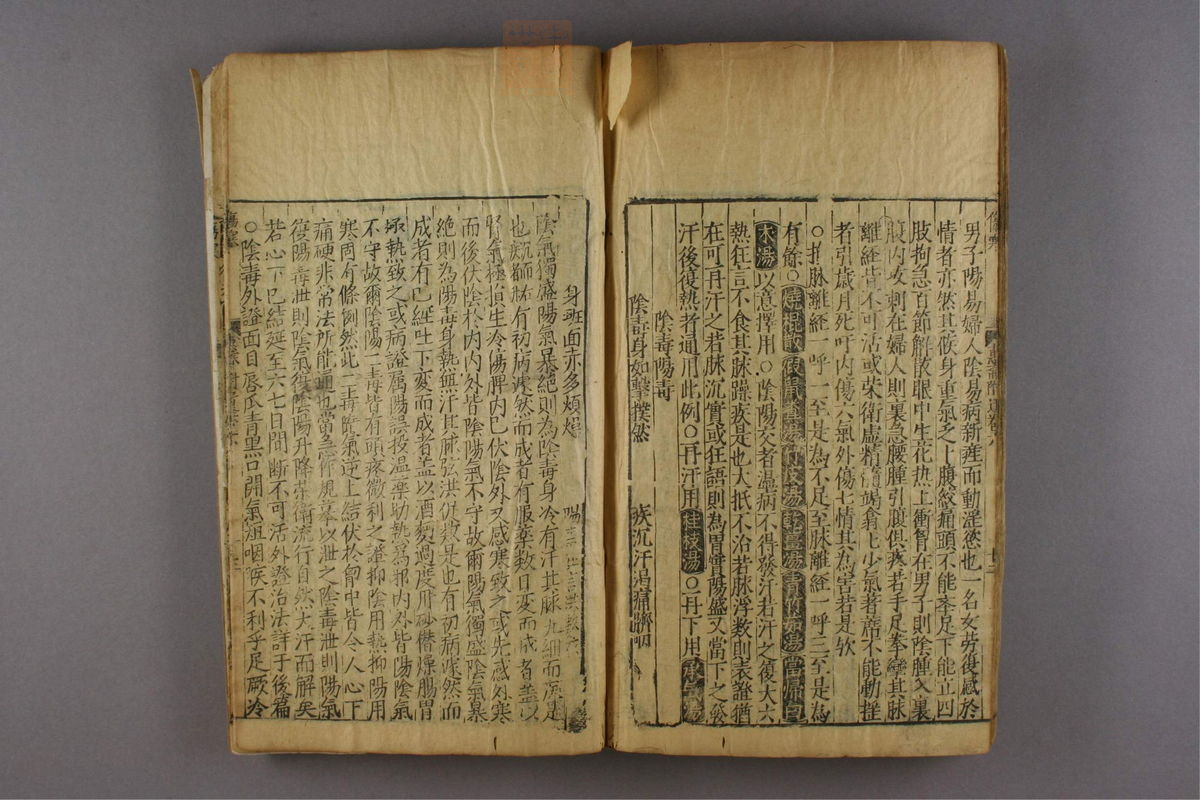 男子陽易婦人陰易病新瘥而動淫慾也一名女勞復感於
情者亦然其候身重氣乏小腹絞痛頭不能舉足下能立四
肢拘急百節解散眼中生花热上衝胷在男子則陰腫入裏
腹內攻刺在婦人則裏急腰腫引腹俱疼若手足拳攣其脉
離経皆不可活或荣衛虛精髓竭翕七少氣著蓆不能動挃
者引歲月死吁內傷六氣外傷七情其為害若是欤
○於脉離経一呼一至是為不足至脉離経一呼三至是為
有餘○燒裩散 湯 湯青竹茹湯當歸白
朮湯以意擇用○陰陽交者温病不得發汗若汗之復大六
熱狂言不食其脉躁疾是也大抵不治若脉浮数則表證猶
在可再汗之若脉沉實或狂語則為胃實陽盛又當下之發
汗後復熱者通用此例○再汗用桂枝湯○再下用承氣湯
陰毒陽毒
陰毒身如擊撲然 疾沉汗渴痛臍咽
身班面赤多煩燥 陽
陰氣獨盛陽氣暴絕則為陰毒身冷有汗其脉 細而 是
也 有初病遽然而成者有服藥数日变而成者盖以
腎氣極 指生冷傷脾內已伏陰外又感寒致之或先感外寒
而後伏陰於內內外皆陰陽氣不守故爾陽氣獨盛陰氣暴
絕則為陽毒身熱無汗其脉弦洪促数是也有初病遽然而
成者有已経吐下変而成者盖以酒麪過度用砂 燥腸胃
极熱致之或病證属陽誤投温藥助熱為邪內外皆陽陰氣
不守故爾陰陽二毒皆有頭疼微利之證抑陰用熱抑陽用
寒固有條例然此二毒 氣逆上結伏於胷中皆令人心下
痛硬非常法所能通也當急作規摹以泄之陰毒泄則陽氣
復陽毒泄則陰氣復陰陽升降荣衛流行自然大汗而解矣
若心下已結延至六七日間断不可活外證治法詳于後篇
○陰毒外證面目唇爪青黑口開氣 咽喉不利手足厥冷